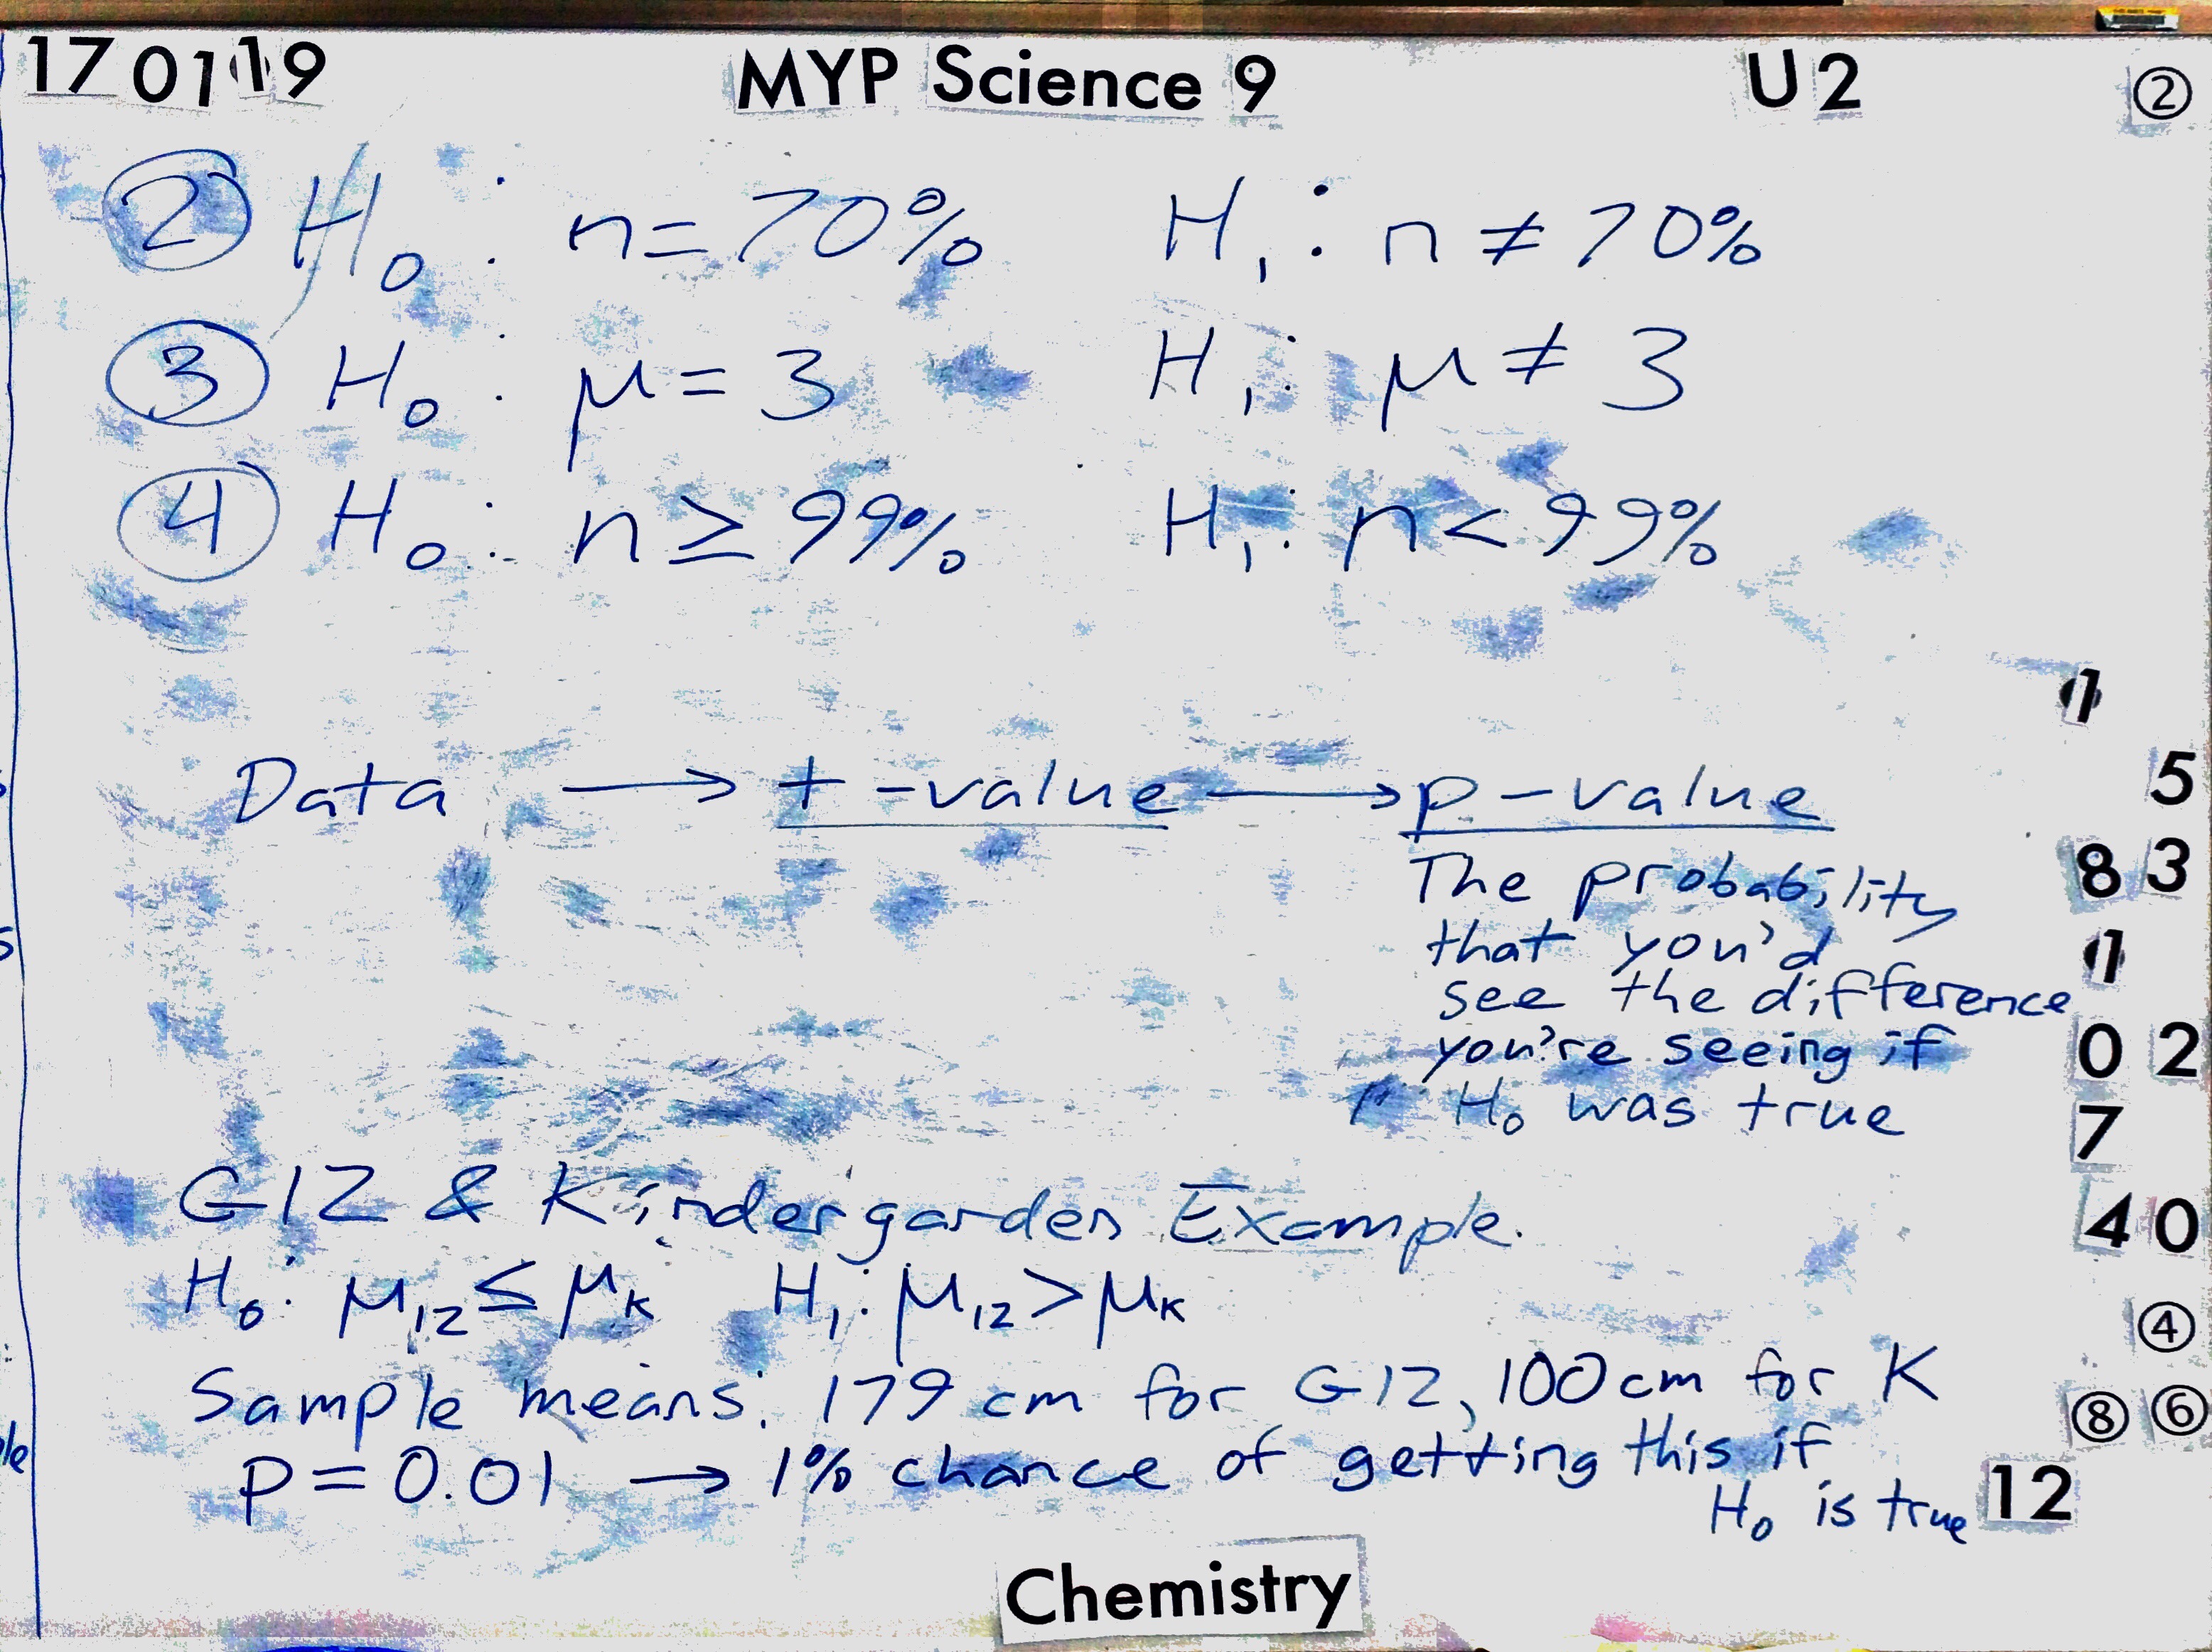 17 01 19 MYP Science 9 U2 ②
② H₀: n = 70% H₁: n ≠ 70%
③ H₀: μ = 3 H₁: μ ≠ 3
④ H₀: n ≥ 99% H₁: n < 99%
1
Data → t-value → p-value
5
The probability
8 3
that you'd
1
see the difference
you're seeing if
0 2
H₀ was true
7
G12 & Kindergarden Example.
4 0
H₀: μ₁₂ ≤ μₖ H₁: μ₁₂ > μₖ
④
Sample means: 179 cm for G12, 100 cm for K
⑧ ⑥
p = 0.01 → 1% chance of getting this if
H₀ is true
12
Chemistry